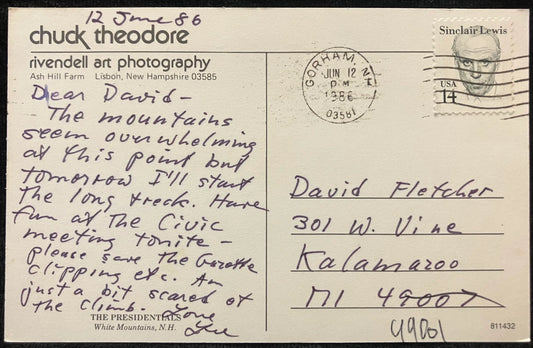 12 June 86
chuck theodore
rivendell art photography
Ash Hill Farm Lisbon, New Hampshire 03585
Dear David-
The mountains
seem overwhelming
at this point but
tomorrow I'll start
the long treck. Have
fun at the Civic
meeting tonite-
please save the Gazette
clipping etc. Am
just a bit scared of
the climb. Love
THE PRESIDENTIALS
White Mountains, N.H.
GORHAM, NH
JUN 12
PM
1986
03581
Sinclair Lewis
USA
14
David Fletcher
301 W. Vine
Kalamazoo
MI 49007
49001
811432